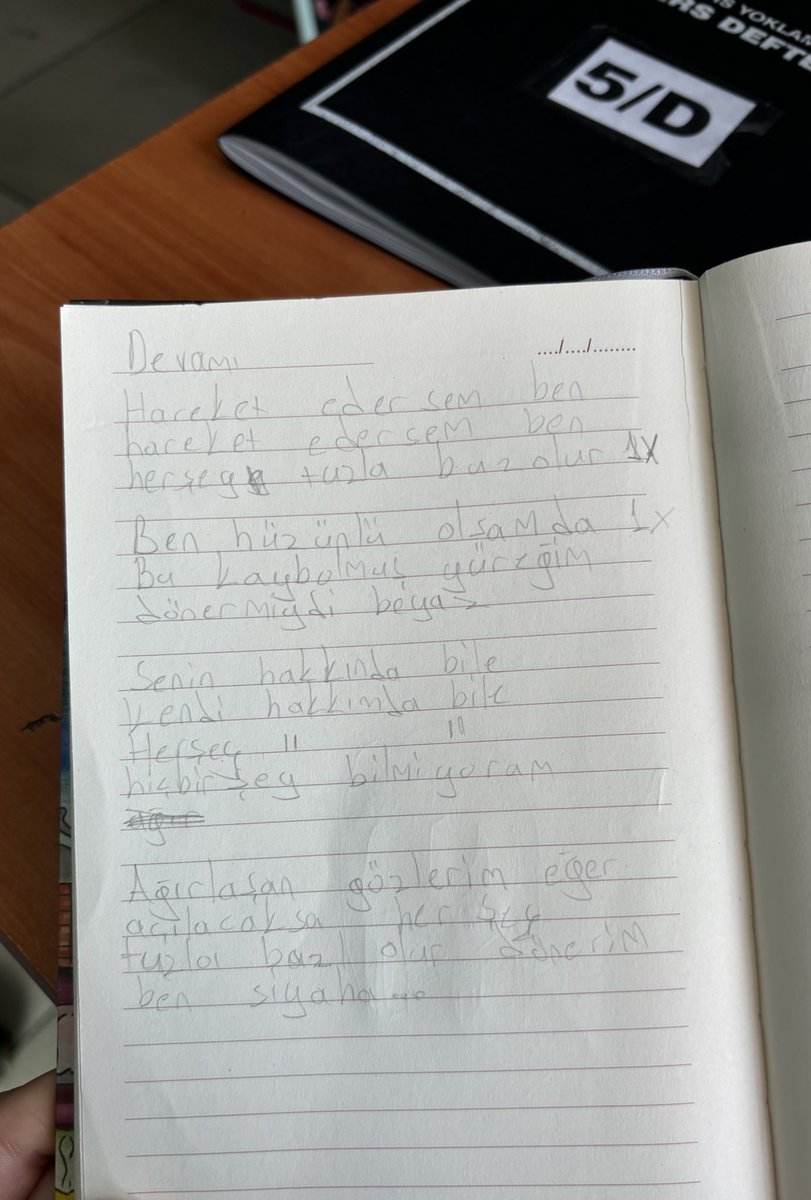 YOKLAM
DERS DEFTE
5/D
Devamı
..../..../........
Hareket edersem ben
hareket edersem ben
herşey tuzla buz olur 1X
Ben hüzünlü olsamda 1X
Bu kaybolmuş yüreğim
dönermiydi beyaz
Senin hakkında bile
kendi hakkımda bile
Herşey " "
hiçbirşey bilmiyoram
Ağırlaşan gözlerim eğer
açılacaksa her şey
tuzla baz olur dönerim
ben siyaha...